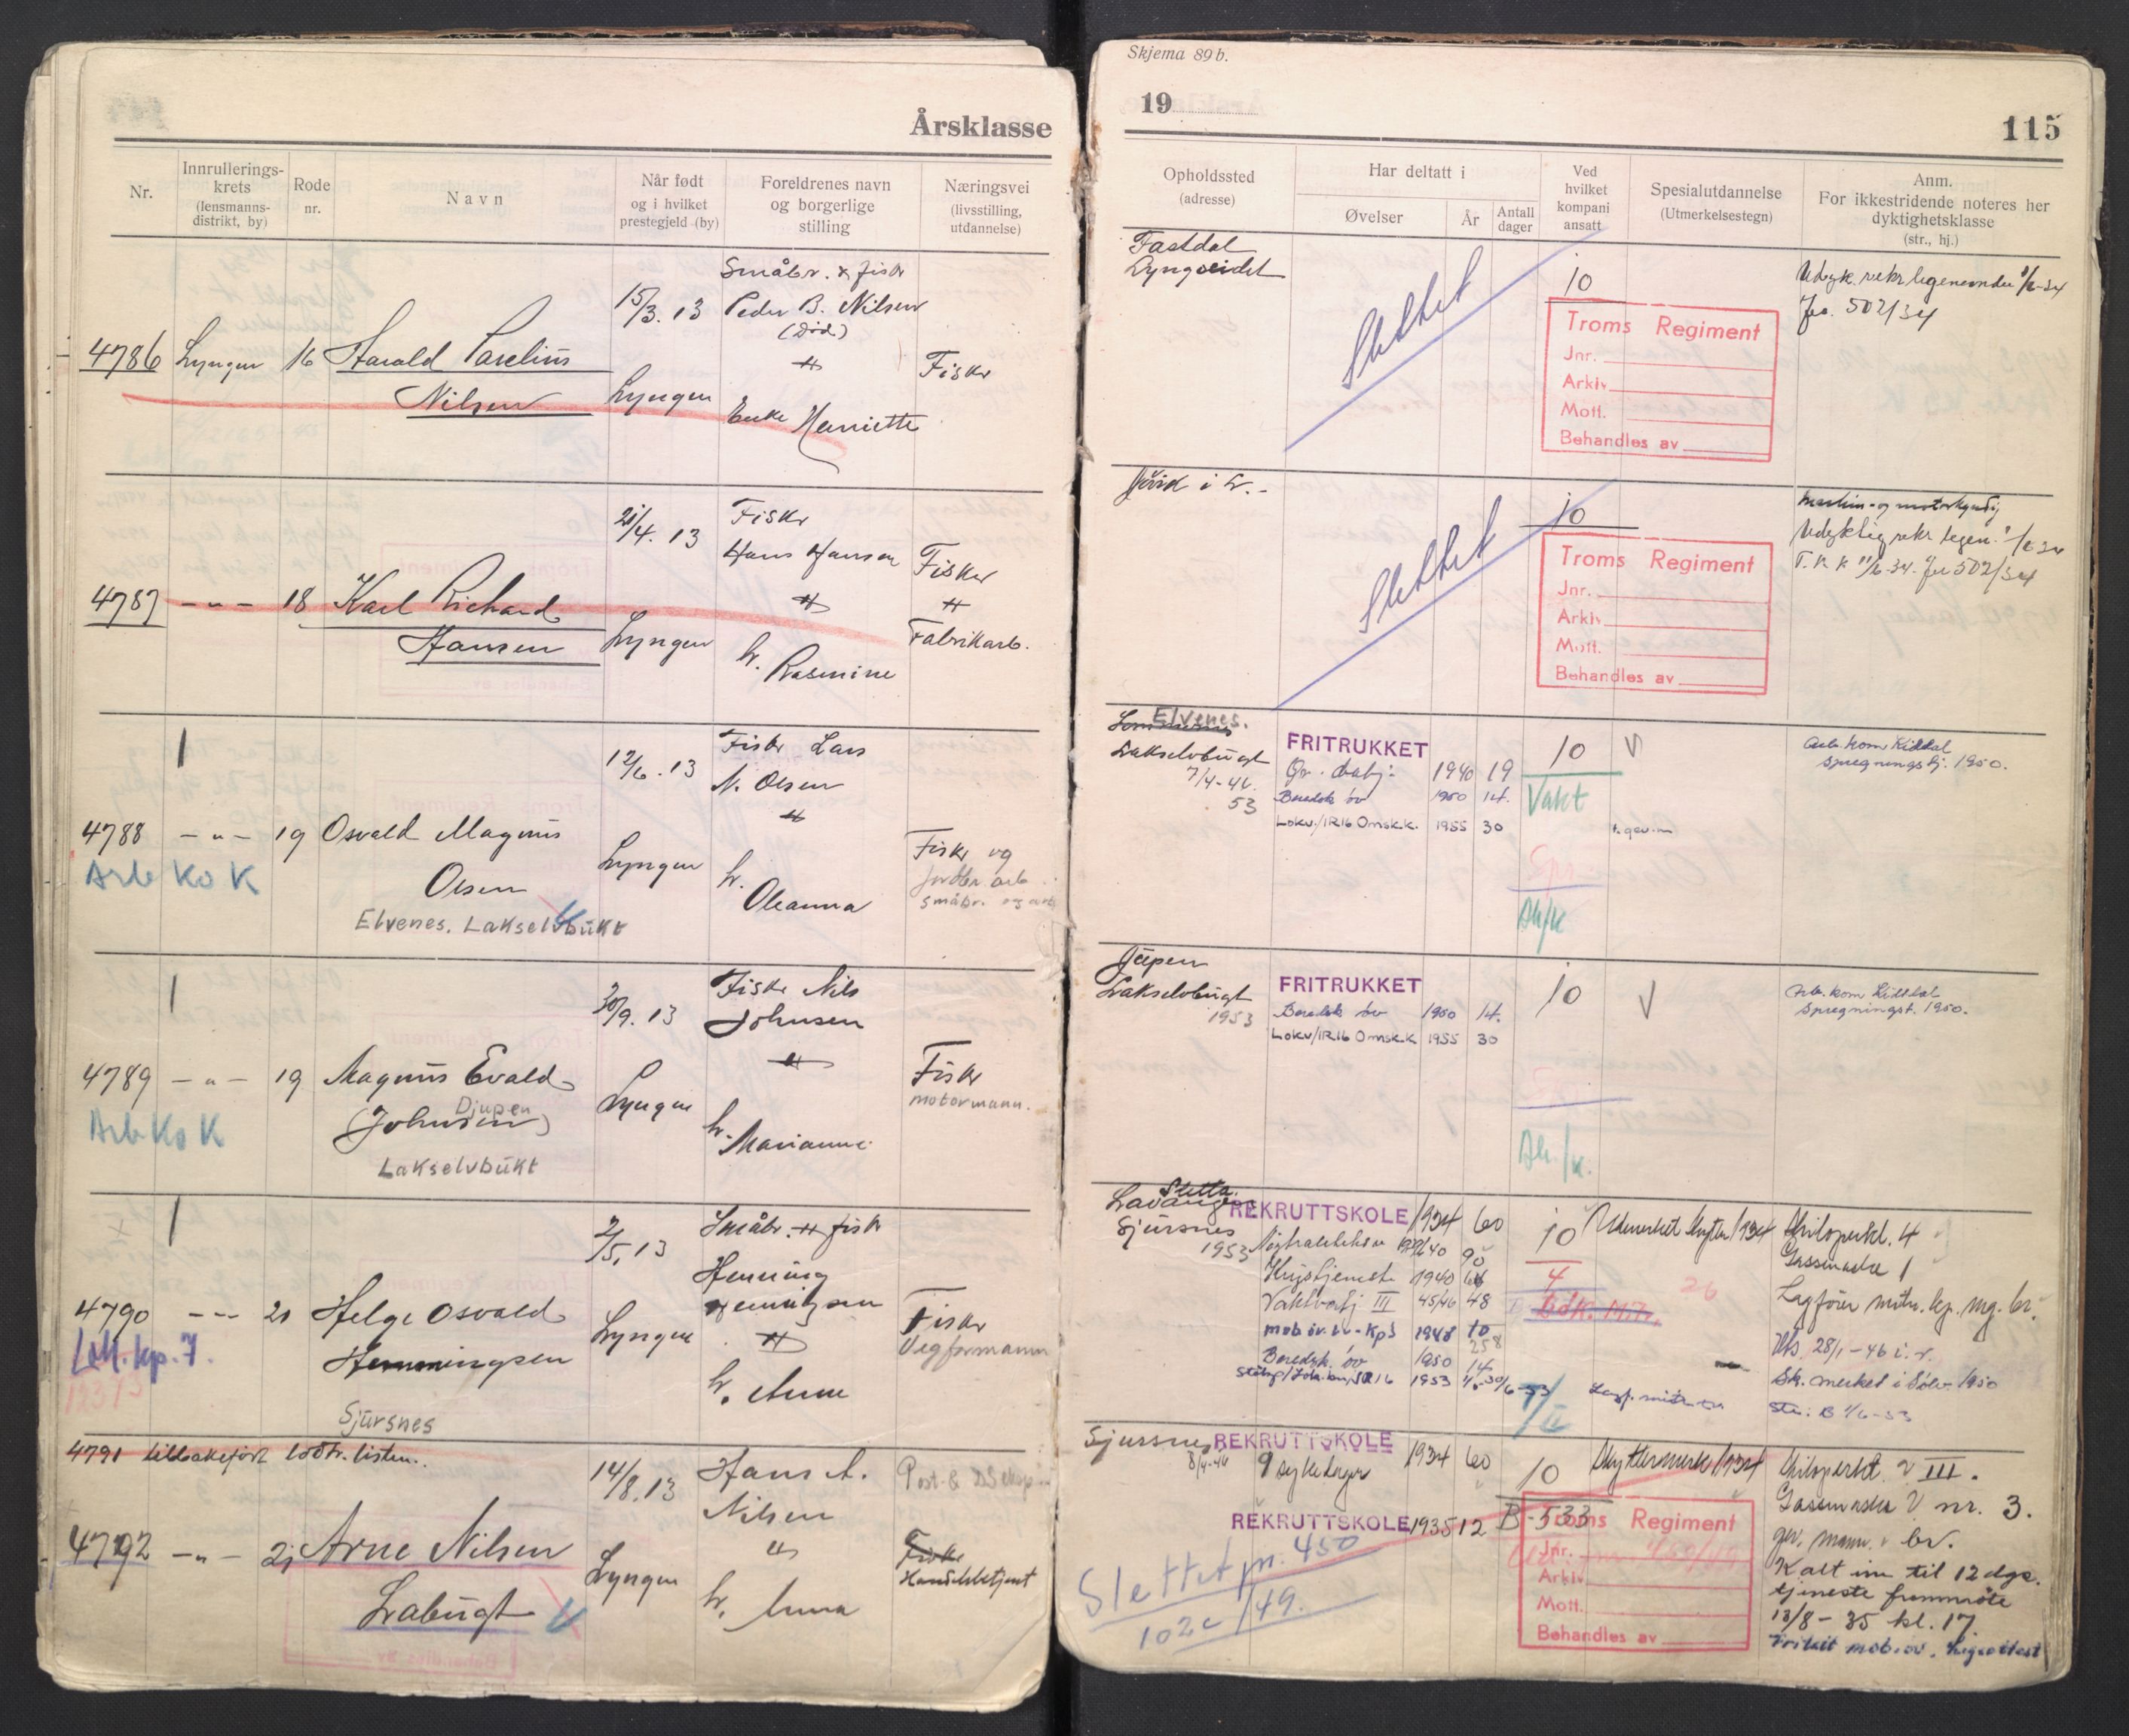 Årsklasse
Nr.
Innrullerings-
krets
(lensmanns-
distrikt, by)
Rode
nr.
Navn
Når født
og i hvilket
prestegjeld (by)
Foreldrenes navn
og borgerlige
stilling
Næringsvei
(livsstilling,
utdannelse)
15/3. 13
Småbr. & fisk
Peder B. Nilsen
(Død)
4786 Lyngen 16 Harald Parelius
Nilsen
Lyngen
Enke Henriette
Fisker
21/4. 13
Fisker
Hans Hansen
4787 - " - 18 Karl Richard
Hansen
Lyngen
h. Rasmine
Fisker
Fabrikarb.
1
12/6. 13
Fisker Lars
N. Olsen
4788 - " - 19 Osvald Magnus
Olsen
Arb Ko K
Elvenes. Lakselvbukt
Lyngen
h.
Oleanna
Fisker og
jordbr. arb
småbr. og arb
1
30/9. 13
Fisker Nils
Johnsen
4789 - " - 19 Magnus Evald
(Johnsen)
Djupen
Arb Ko K
Lakselvbukt
Lyngen
h.
Marianne
Fisker
motormann.
1
2/5. 13
Småbr. fisk
Henning
Henningsen
4790 - " - 21 Helge Osvald
Hemmingsen
kp. 7.
Sjursnes
Lyngen
h. Anna
Fisker
Vegformann
4791 tilbakeført lodtr. listen.
14/8. 13
Hans A.
Nilsen
4792 - " - 21 Arne Nilsen
Labugt
Lyngen
h. Anna
Post- &
Fisker
Handelsbetjent
Skjema 89 b.
19
115
Opholdssted
(adresse)
Har deltatt i
Øvelser
År
Antall
dager
Ved
hvilket
kompani
ansatt
Spesialutdannelse
(Utmerkelsestegn)
Anm.
For ikkestridende noteres her
dyktighetsklasse
(str., hj.)
Fastdal
Lyngseidet
Slettet
10
Udyk. rekr legenemnder
Jnr. 502/34
Troms Regiment
Jnr.
Arkiv
Mott.
Behandles av
i L. -
Slettet
10
Maskin- og motorkyndig
Udyktig rekr. legen.
502/34
Troms Regiment
Jnr.
Arkiv
Mott.
Behandles av
Elvenes.
Lakselvbugt
7/4-46.
53
FRITRUKKET
1940 19
Beredsk. øv 1950 14.
Lokv./IR16 Omsk.k. 1955 30
10
Vakt
Arb. kom Kitdal
spregningstj. 1950.
Lakselvbugt
1953
FRITRUKKET
Beredsk øv 1950 14.
Lokv/IR16 Omsk.k 1955 30
10
Arb. kom Kitdal
Spregningst. 1950.
Sletta.
Lavangen
Sjursnes
1953
REKRUTTSKOLE 1934 60
Nøytralitetsv 1939/40 90
Krigstjeneste 1940
III 45/46 48
mob. øv. 1948 10
258
Beredsk. øv 1950 14
1953
10
4
26
Utmerket skytter 1934
4
Gassmaske 1
Lagfører mitr. kp. mg. br.
28/1-46 i. r.
Sk. merket i Sølv 1950
Str: B 1/6-53
Sjursnes
8/4-46
REKRUTTSKOLE 1934 60
9 sykedager
10
Skyttermerke 1934
III.
Gassmaske V nr. 3.
gev. mann. br.
REKRUTTSKOLE 1935 12
B-533
Troms Regiment
Jnr.
Arkiv
Mott.
Behandles av
Slettet jn. 450
102c/49.
Kalt inn til 12 dgs.
tjeneste frammøte
13/8-35 kl. 17.
Fritatt mob. øv. legeattest